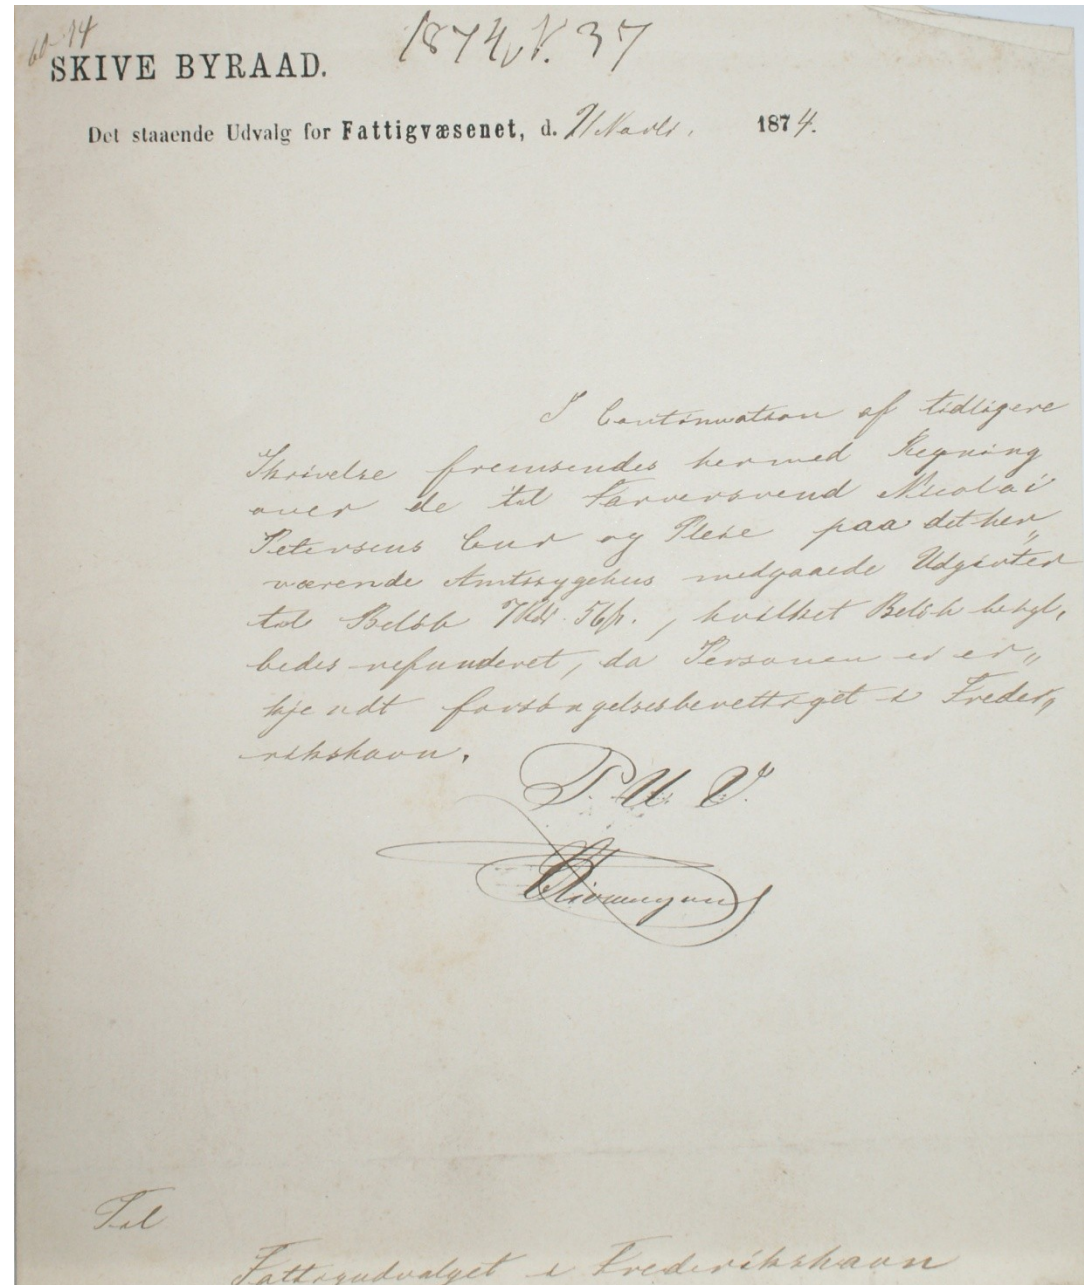 60-74
1874 N. 37
SKIVE BYRAAD.
Det staaende Udvalg for Fattigvæsenet, d. 21 Novbr. 1874.
I Continuation af tidligere
Skrivelse fremsendes hermed Regning
over de til Farversvend Nicolai
Petersens Cur og Pleie paa dether„
værende Amtssygehus medgaaede Udgivter
til Beløb 7 Rd. 56 ß., hvilket Beløb behgl.
bedes refunderet, da Personen er er„
kjendt forsørgelsesberettiget i Frede„
rikshavn.
P. U. V.
Til
Fattigudvalget i Frederikshavn